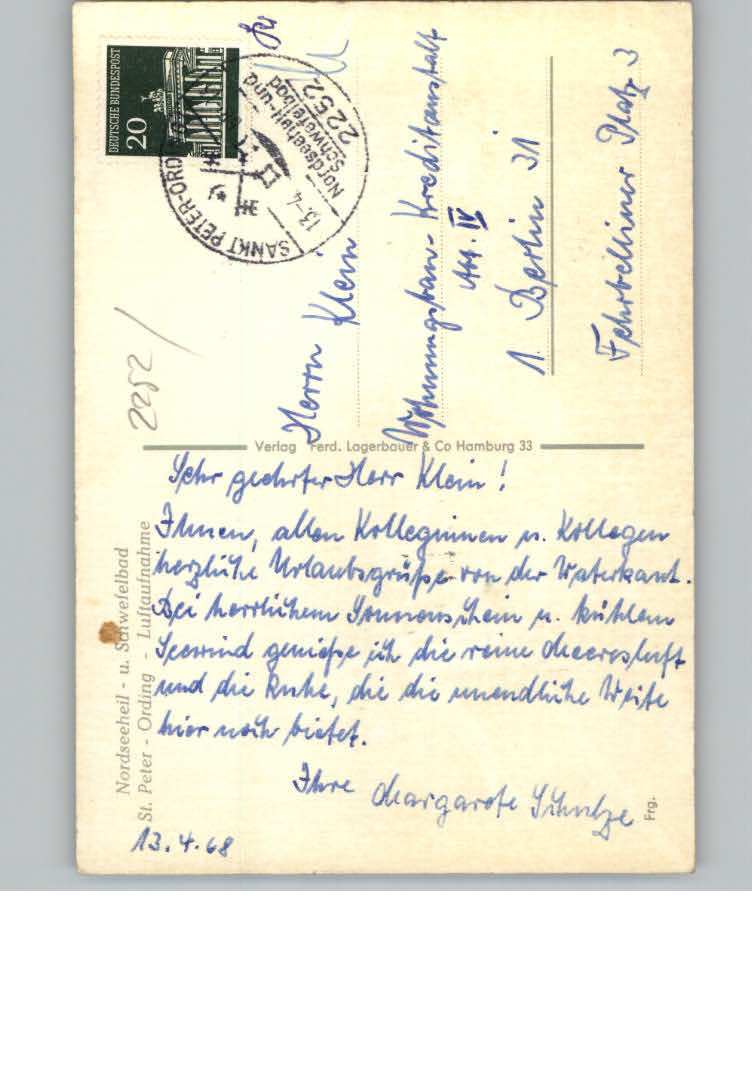 Nordseeheil - u. Schwefelbad
St. Peter - Ording - Luftaufnahme
2252
DEUTSCHE BUNDESPOST
20
SANKT PETER-ORD
13.-4.
2252
Nordseeheil-und
Schwefelbad
Herrn Klein
Wohnungsbau-Kreditanstalt
Abt. IV
1 Berlin 31
Fehrbelliner Platz 3
Verlag Ferd. Lagerbauer & Co Hamburg 33
Sehr geehrter Herr Klein!
Ihnen, allen Kolleginnen u. Kollegen
herzliche Urlaubsgrüße von der Waterkant.
Bei herrlichem Sonnenschein u. kühlem
Seewind genieße ich die reine Meeresluft
und die Ruhe, die die unendliche Weite
hier noch bietet.
Ihre Margarete Schulze
13.4.68
Frg.